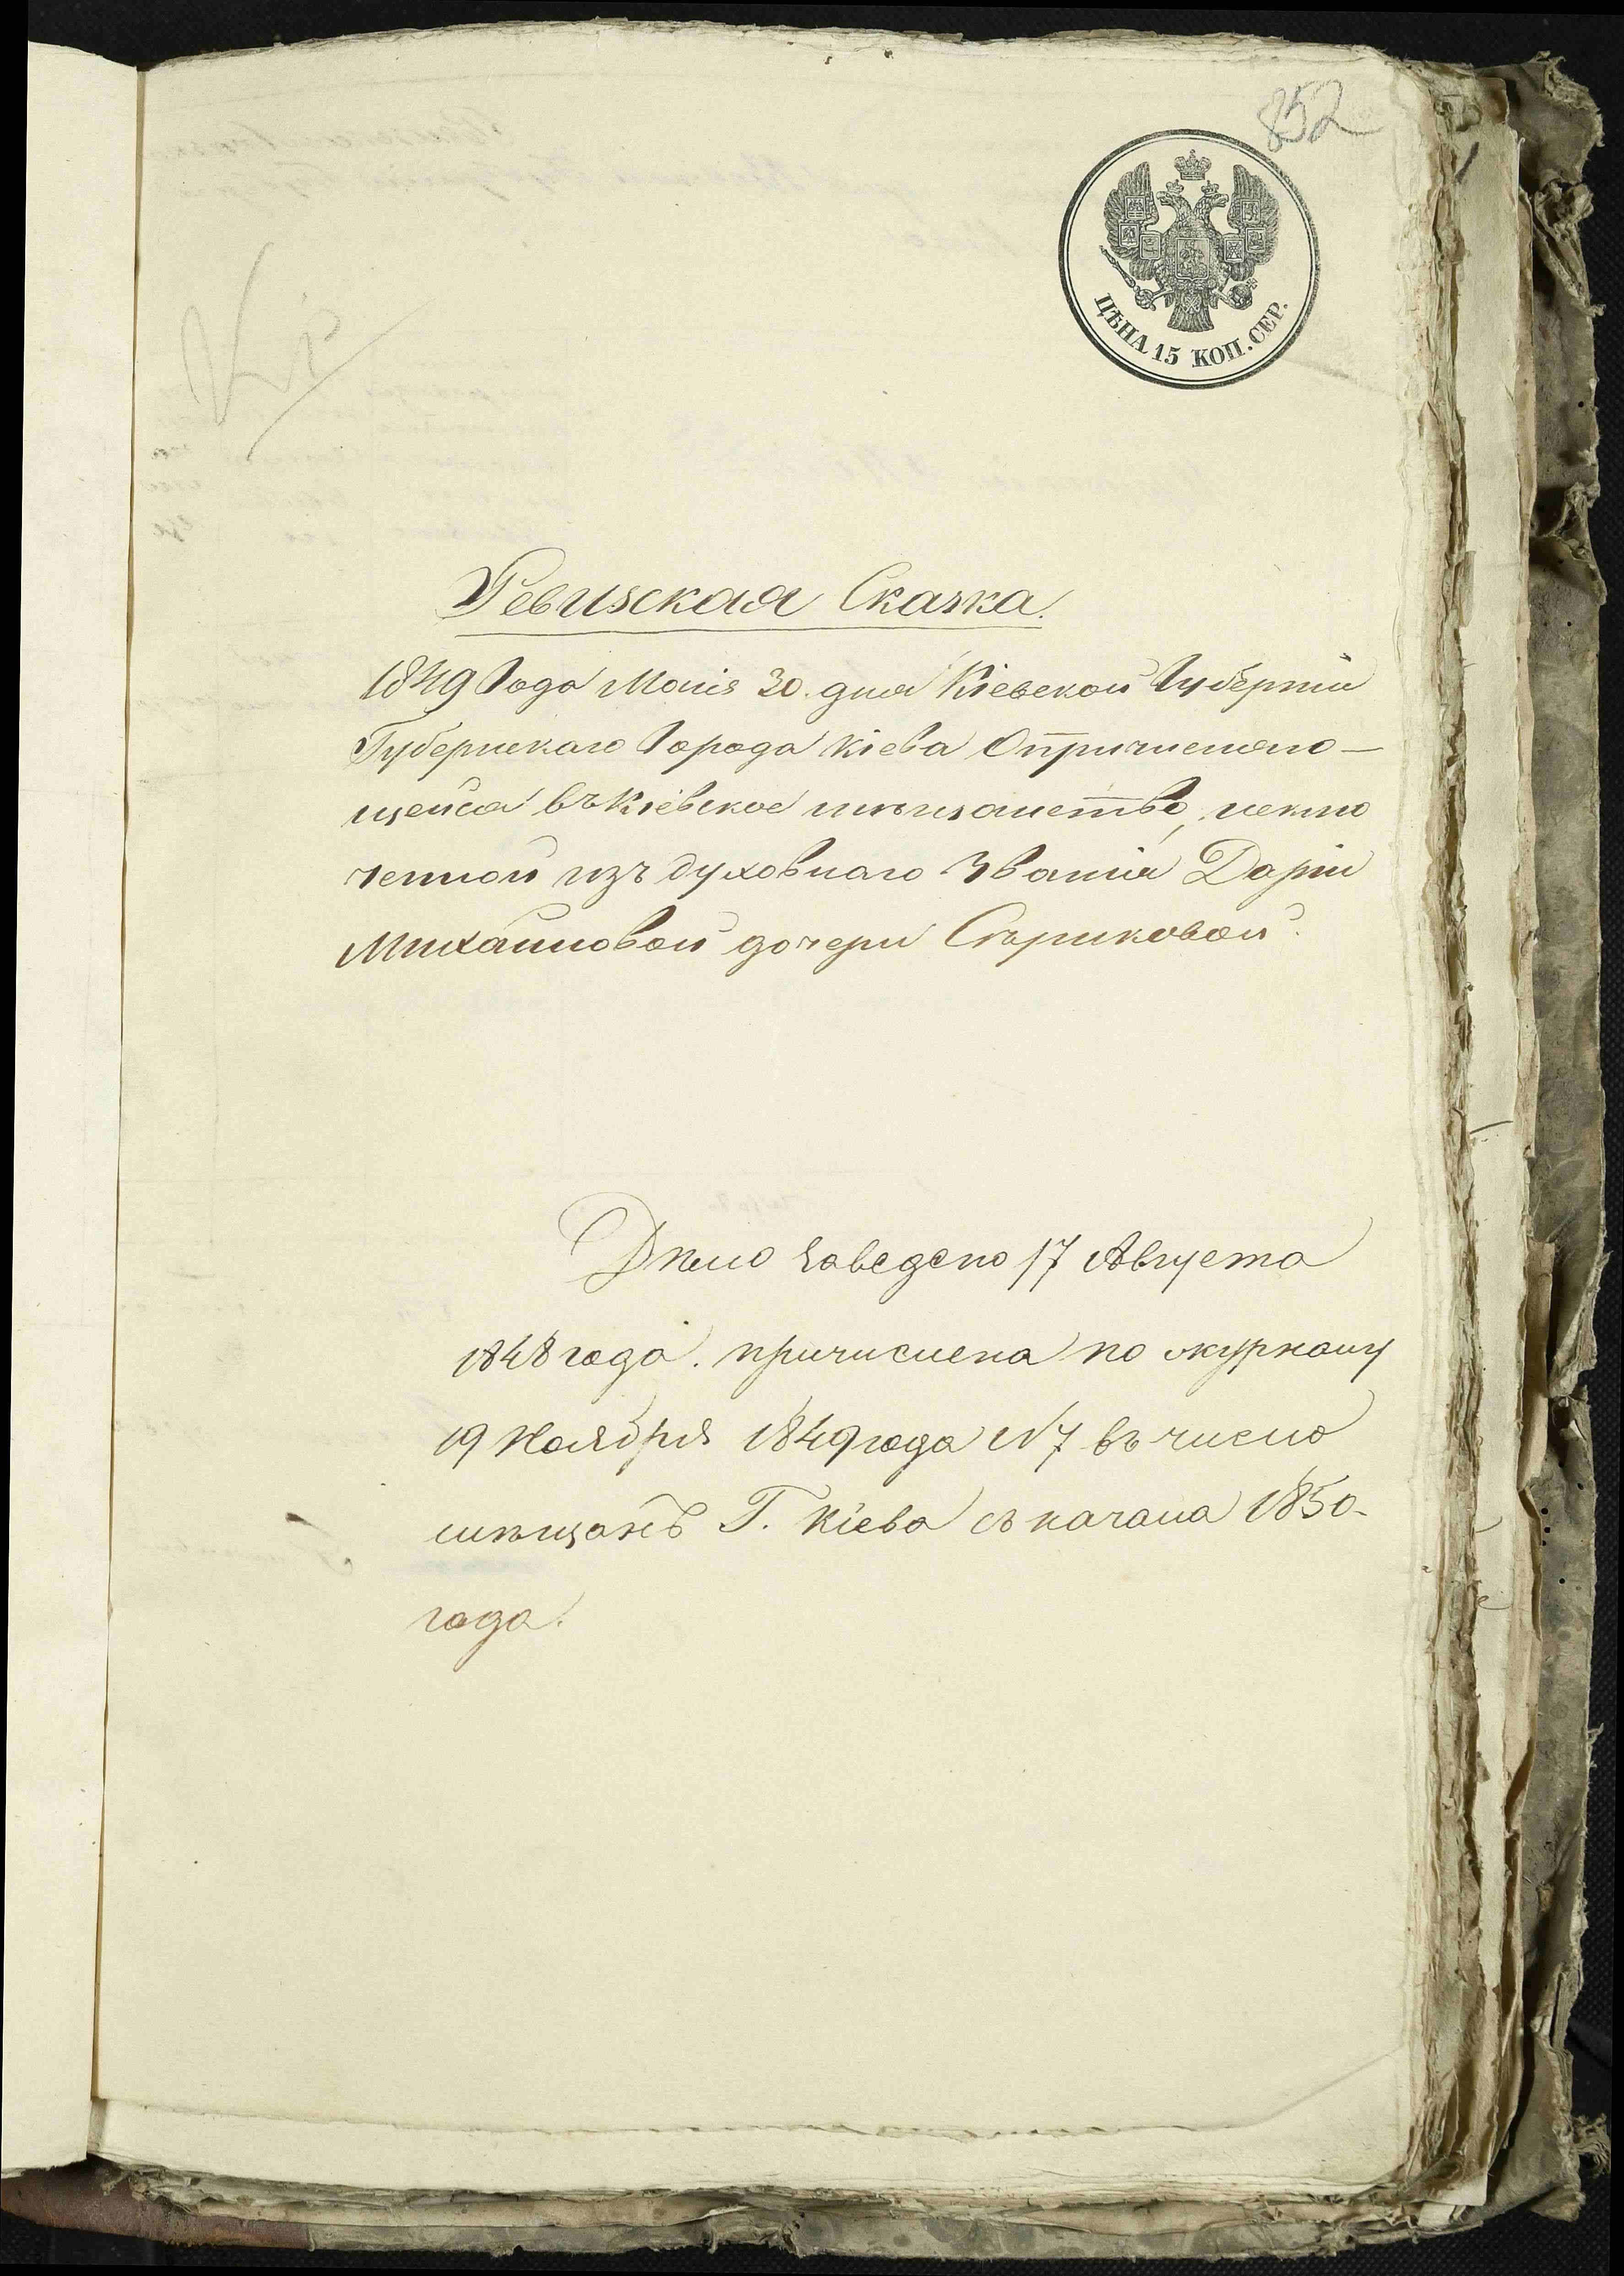 852
ЦѢНА 15 КОП. СЕР.
Ревизская Сказка.
1849 Года Маія 30. дня Кіевской Губерніи
Губернскаго Города Кіева О причисляю-
щейся въ Кіевское мѣщанство, исклю
ченной изъ духовнаго Званія Даріи
Михайловой дочери Стариковой.
Дѣло заведено 17 Августа
1848 года. причислена по журналу
19 Ноября 1849 года N 7 въ число
мѣщанъ Г. Кіева съ начала 1850-
года.